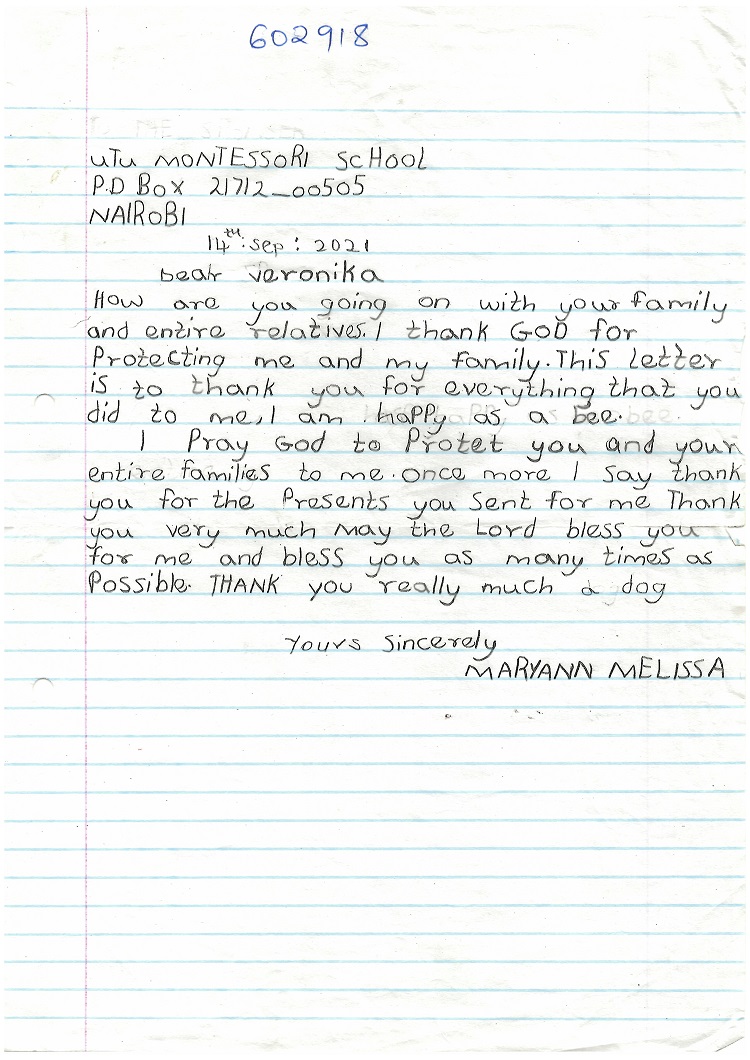 602918
UTU MONTESSORI SCHOOL
P.O BOX 21712_00505
NAIROBI
14th: Sep: 2021
Dear Veronika
How are you going on with your family
and entire relatives. I thank GOD for
Protecting me and my family. This letter
is to thank you for everything that you
did to me, I am happy as a bee.
I Pray God to Protet you and your
entire families to me. once more I say thank
you for the Presents you Sent for me Thank
you very much May the Lord bless you
for me and bless you as many times as
Possible. THANK you really much a dog
Yours Sincerely
MARYANN MELISSA